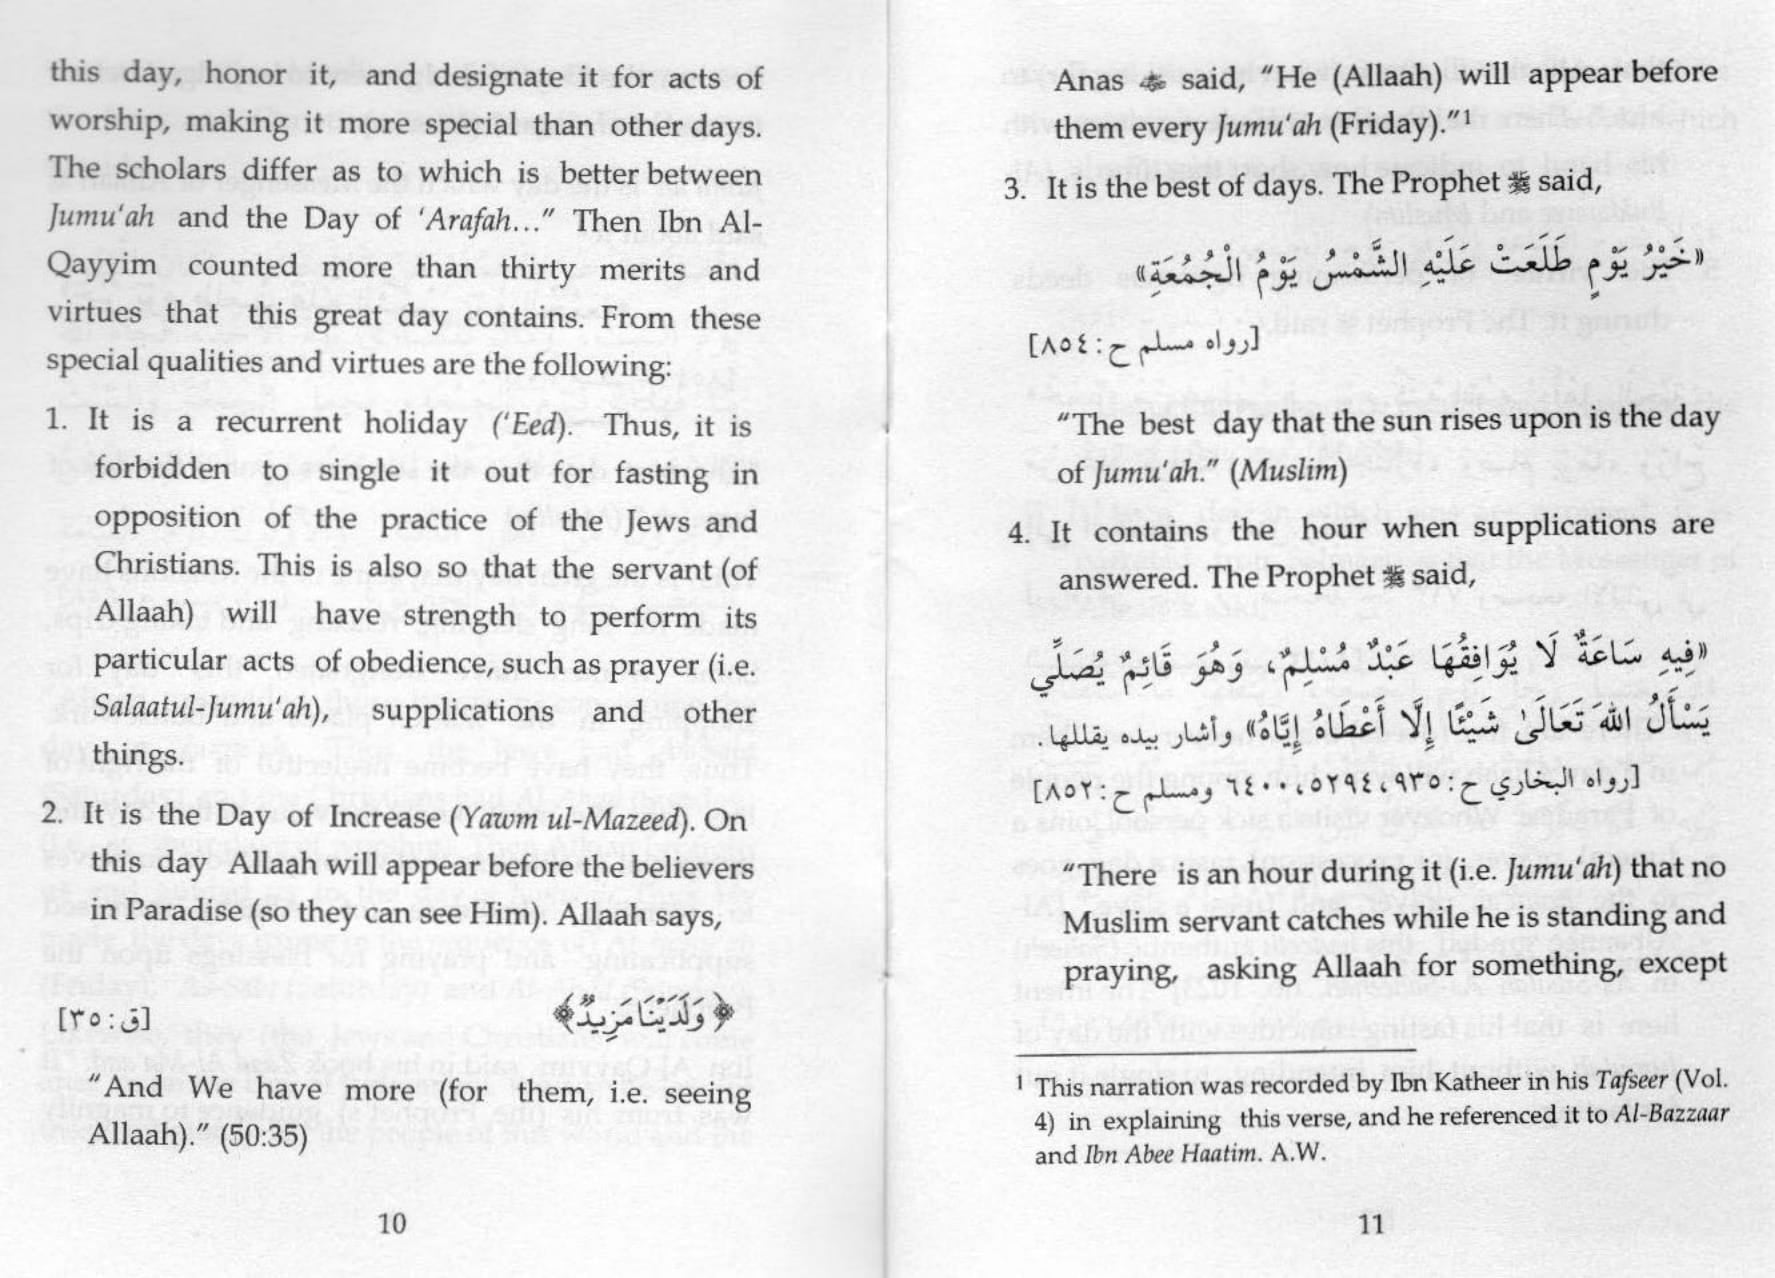 this day, honor it, and designate it for acts of
worship, making it more special than other days.
The scholars differ as to which is better between
Jumu'ah and the Day of 'Arafah..." Then Ibn Al-
Qayyim counted more than thirty merits and
virtues that this great day contains. From these
special qualities and virtues are the following:
1. It is a recurrent holiday ('Eed). Thus, it is
forbidden to single it out for fasting in
opposition of the practice of the Jews and
Christians. This is also so that the servant (of
Allaah) will have strength to perform its
particular acts of obedience, such as prayer (i.e.
Salaatul-Jumu'ah), supplications and other
things.
2. It is the Day of Increase (Yawm ul-Mazeed). On
this day Allaah will appear before the believers
in Paradise (so they can see Him). Allaah says,
﴿ وَلَدَيْنَا مَزِيدٌ ﴾ [ق: ٣٥]
"And We have more (for them, i.e. seeing
Allaah)." (50:35)
10
Anas said, "He (Allaah) will appear before
them every Jumu'ah (Friday)."1
3. It is the best of days. The Prophet ﷺ said,
«خَيْرُ يَوْمٍ طَلَعَتْ عَلَيْهِ الشَّمْسُ يَوْمُ الْجُمُعَةِ»
[رواه مسلم ح: ٨٥٤]
"The best day that the sun rises upon is the day
of Jumu'ah." (Muslim)
4. It contains the hour when supplications are
answered. The Prophet ﷺ said,
«فِيهِ سَاعَةٌ لَا يُوَافِقُهَا عَبْدٌ مُسْلِمٌ، وَهُوَ قَائِمٌ يُصَلِّي
يَسْأَلُ اللهَ تَعَالَىٰ شَيْئًا إِلَّا أَعْطَاهُ إِيَّاهُ» وأشار بيده يقللها.
[رواه البخاري ح: ٩٣٥، ٥٢٩٤، ٦٤٠٠ ومسلم ح: ٨٥٢]
"There is an hour during it (i.e. Jumu'ah) that no
Muslim servant catches while he is standing and
praying, asking Allaah for something, except
1 This narration was recorded by Ibn Katheer in his Tafseer (Vol.
4) in explaining this verse, and he referenced it to Al-Bazzaar
and Ibn Abee Haatim. A.W.
11